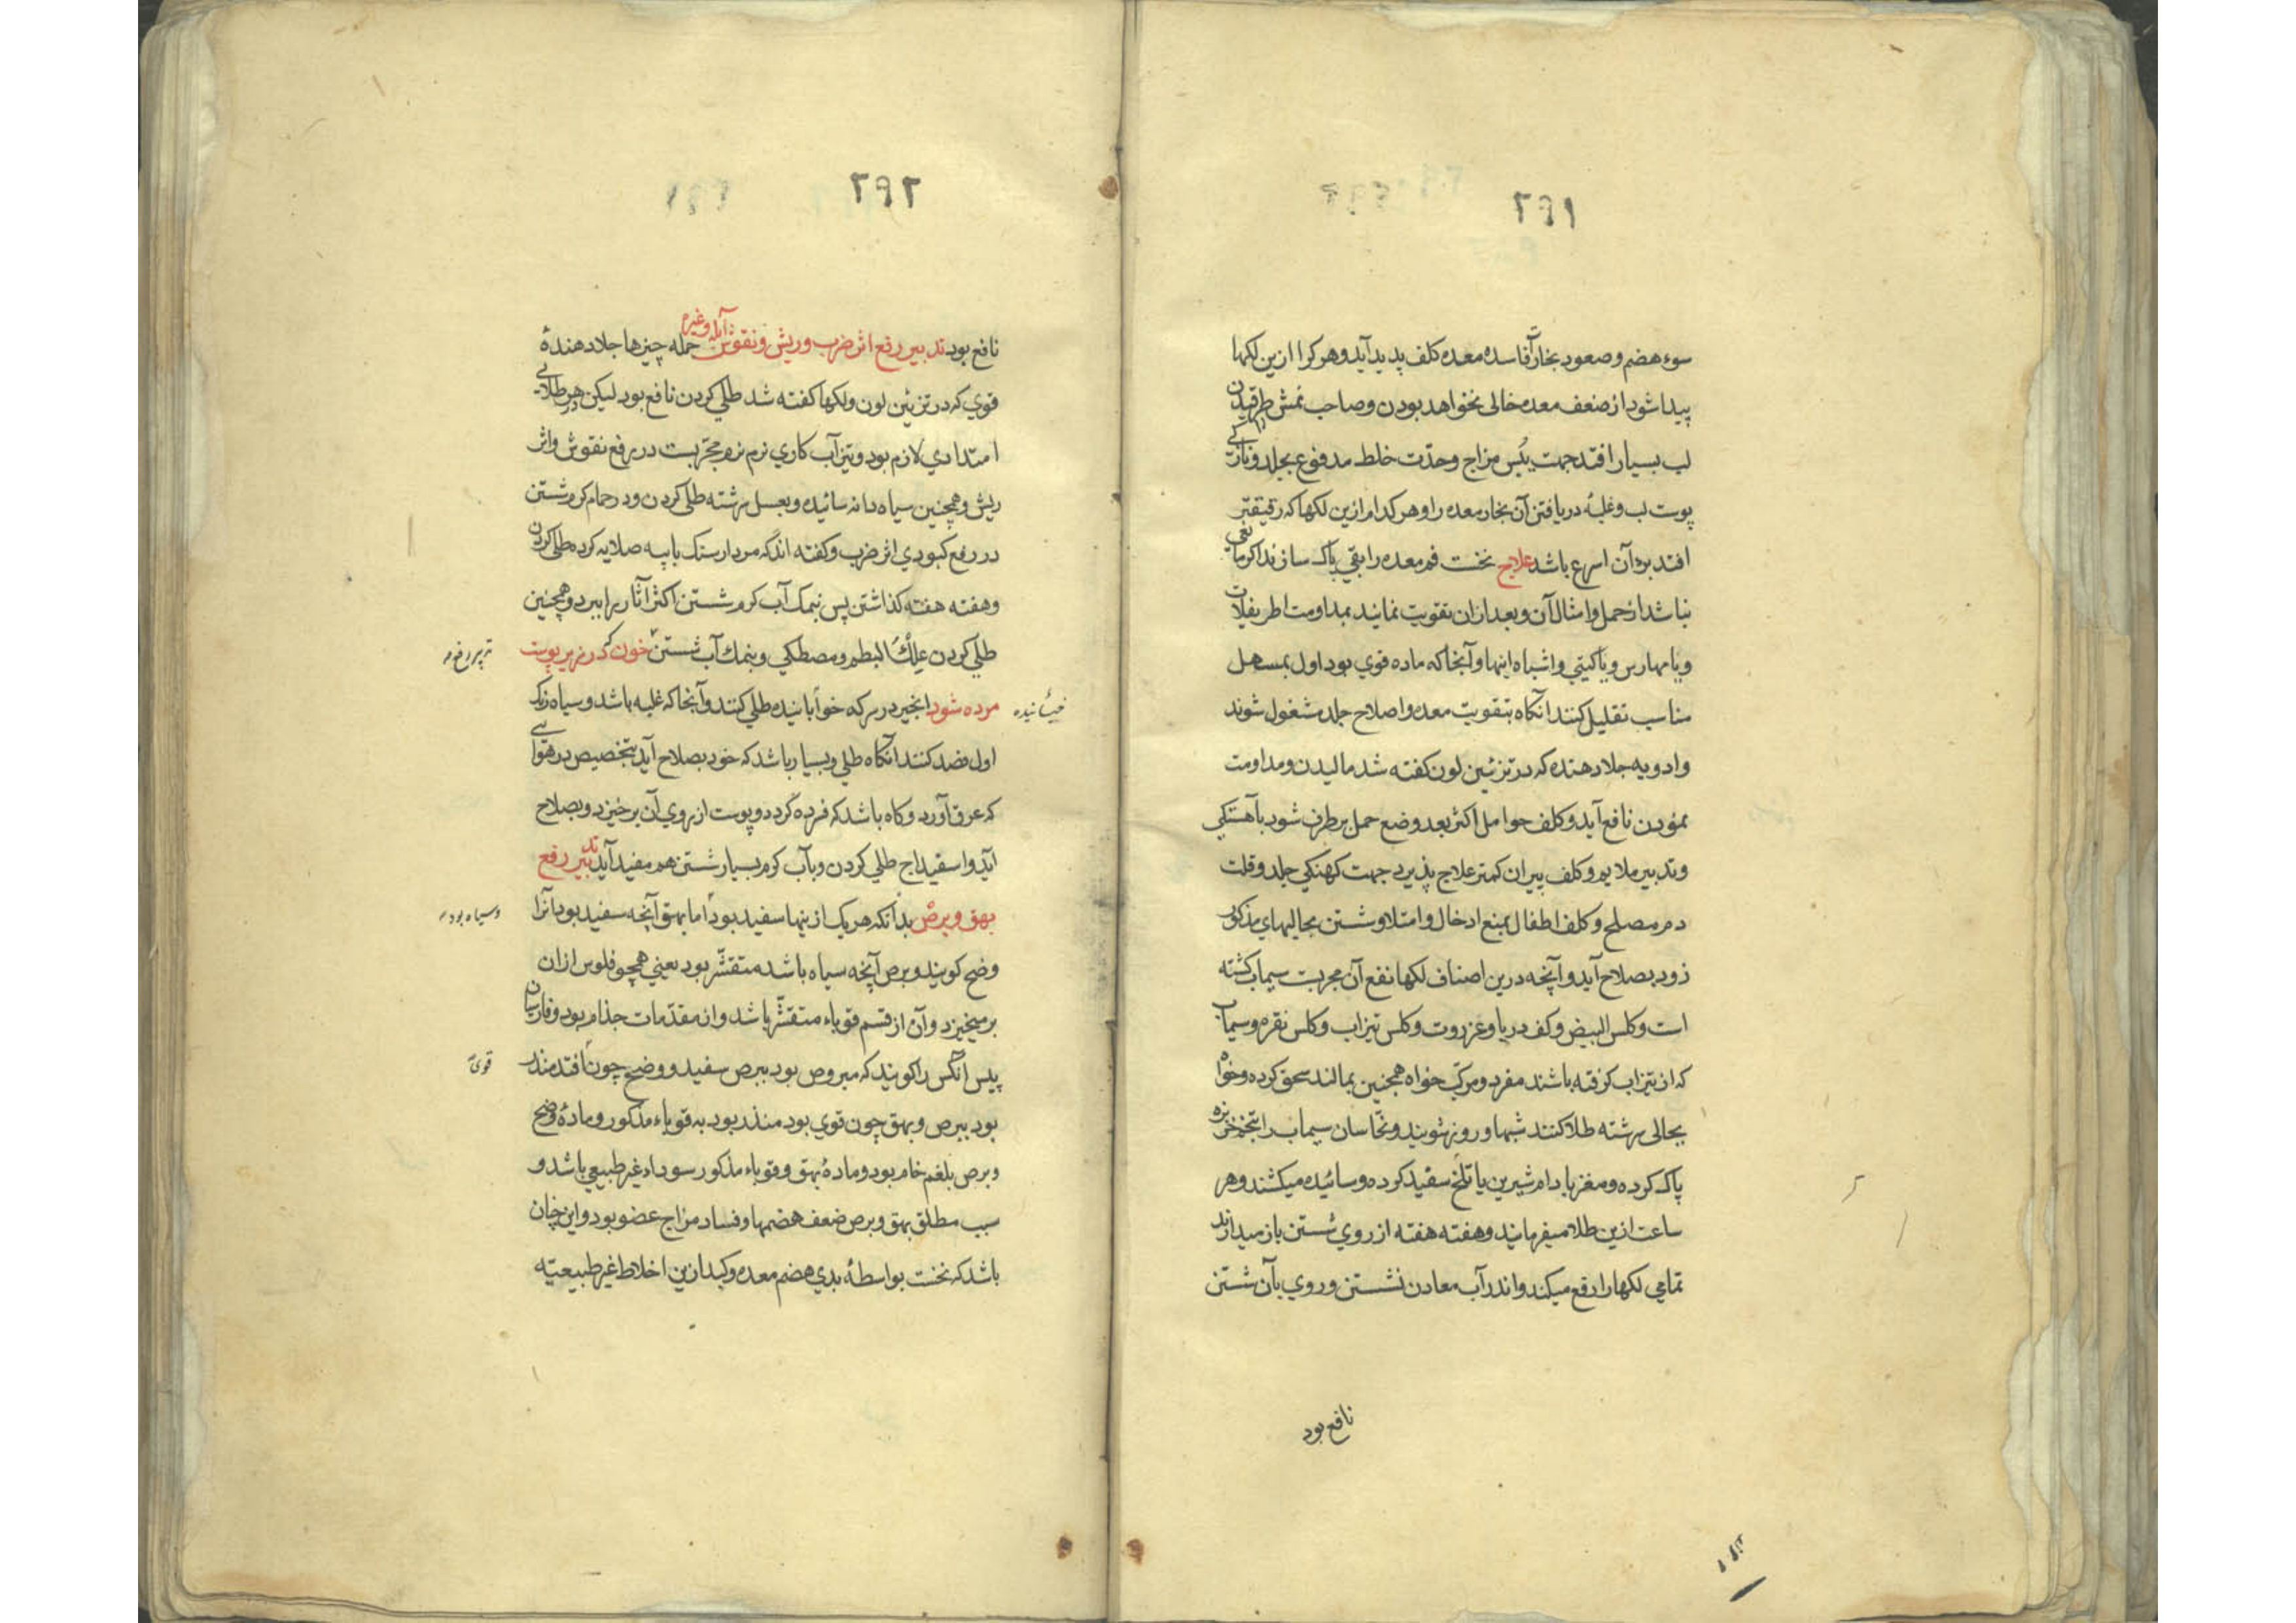 ۲۹۱
سوء هضم و صعود بخارآت فاسده معده کلف پدید آید و هر کرا ازین لکها
پیدا شود از ضعف معده خالی نخواهد بودن و صاحب نمش را ترقیدن
لب بسیار افتد جهت یُبس مزاج وحدّت خلط مدفوع بجلد و نازکی
پوست لب و غلبهٔ دریافتن آن بخار معده را و هر کدام ازین لکها که رقیقتر
افتد برء آن اسرع باشد علاج نخست فم معده را بقی پاک سازند اکر مانعی
نباشد از حمل و امثال آن و بعد ازان تقویت نمایند بمداومت اطریفلات
و یا مهارس و یا کیتی و اشباه اینها و آنجا که ماده قوي بود اول بمسهل
مناسب تقلیل کنند آنکاه بتقویت معده و اصلاح جلد مشغول شوند
و ادویه جلا دهنده که در تزئین لون کفته شد مالیدن و مداومت
نمودن نافع آید و کلف حوامل اکثر بعد وضع حمل برطرف شود بآهستکی
و تدبیر ملایم و کلف پیران کمتر علاج پذیرد جهت کهنکی جلد و قلت
دم مصلح و کلف اطفال بمنع ادخال و امتلا و شستن بجالیهاي مذکور
زود بصلاح آید و آنچه درین اصناف لکها نفع آن مجربت سیماب کشته
است و کلس البیض و کف دریا و عزروت و کلس تیزاب و کلس نقره و سیماب
که از تیزاب کرفته باشند مفرد و مرکّب خواه همچنین بمالند سحق کرده و خواه
بجالی سرشته طلا کنند شبها و روز بشویند و نخّاسان سیماب را بتخم خربزه
پاک کرده و مغز بادام شیرین یا تلخ سفید کرده و سائیده میکشند و هر
ساعت ازین طلا میفرمایند و هفته هفته از روي شستن باز میدارند
تمامي لکها را رفع میکند و اندر آب معادن نشستن و روي بآن شستن
نافع بود
۲۹۲
نافع بود تدبیر رفع اثر ضرب و ریش و نقوش آبله و غیره جمله چیزها جلا دهندهٔ
قوي که در تزئین لون و لکها کفته شد طلي کردن نافع بود لیکن در هر طلائی
امتدادي لازم بود و تیزآب کاري نرم نرم مجرّبست در رفع نقوش و اثر
ریش و همچنین سیاه دانه سائیده و بعسل سرشته طلي کردن و در حمام کرم شستن
در رفع کبودي اثر ضرب و کفته اند که مردارسنک با پیه صلایه کرده طلي کردن
و هفته هفته کذاشتن پس بنمک آب کرم شستن اکثر آثار را ببرد و همچنین
طلي کردن علک البطم و مصطکي و بنمک آب شستن خون که در زیر پوست
مرده شود انجیر در سرکه خوابانیده طلي کنند و آنجا که غلبه باشد و سیاه رنک
خیسانیده
اول فصد کنند آنکاه طلي و بسیار باشد که خود بصلاح آید بتخصیص در هوائی
که عرق آورد و کاه باشد که فرده کردد و پوست از روي آن برخیزد و بصلاح
آید و اسفیداج طلي کردن و بآب کرم بسیار شستن هم مفید آید تدبیر رفع
بهق و برص بدانکه هریک ازینها سفید بود اما بهق آنچه سفید بود آنرا
و سیاه بود
وضح کویند و برص آنچه سیاه باشد متقشّر بود یعني همچو فلوس ازان
برمیخیزد و آن از قسم قوباء متقشّر باشد و از مقدّمات جذام بود و فارسیان
پیس آنکس را کویند که مبروص بود ببرص سفید و وضح چون افتد منذر
قوی
بود ببرص و بهق چون قوي بود منذر بود به قوباء مذکور و مادهٔ وضح
و برص بلغم خام بود و مادهٔ بهق و قوباء مذکور سوداء غیر طبیعي باشد و
سبب مطلق بهق و برص ضعف هضمها و فساد مزاج عضو بود و این چنان
باشد که نخست بواسطهٔ بدي هضم معده و کبد ازین اخلاط غیر طبیعیّه